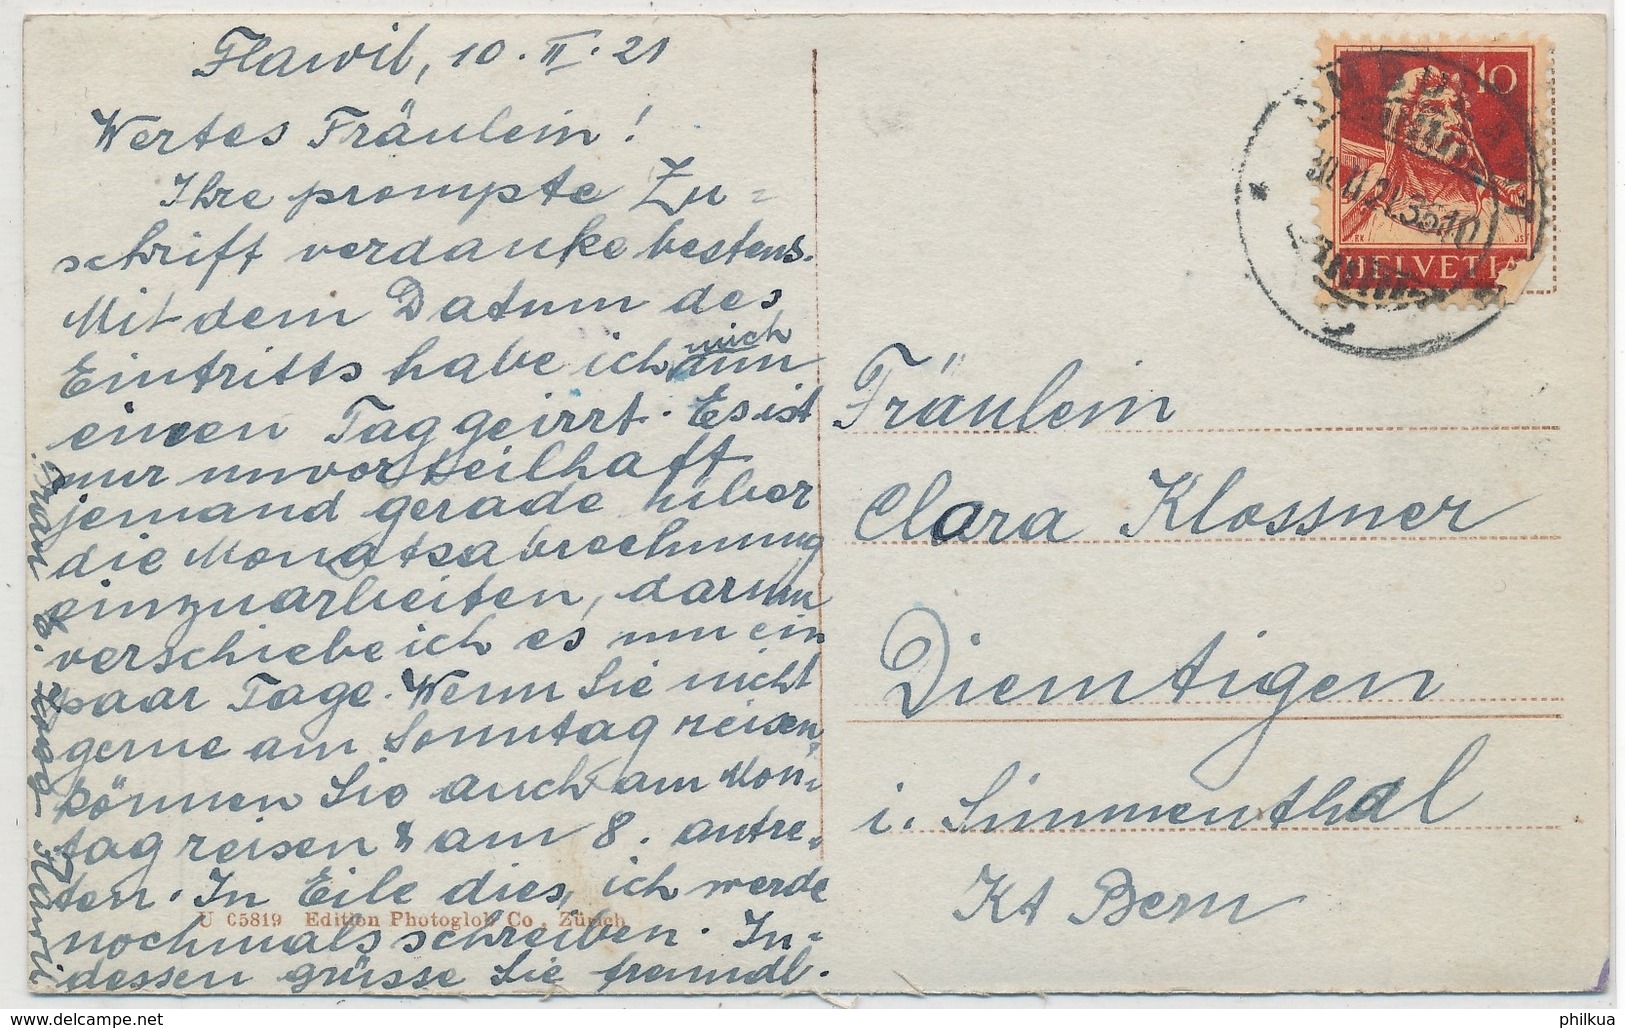 Flawil, 10. II. 21
Wertes Fräulein!
Ihre prompte Zu=
schrift verdanke bestens.
Mit dem Datum des
Eintritts habe ich mich um
einen Tag geirrt. Es ist
nur unvorteilhaft
jemand gerade über
die Monatsabrechnung
einzuarbeiten, darum
verschiebe ich es um ein
paar Tage. Wenn Sie nicht
gerne am Sonntag reisen,
können Sie auch am Mon=
tag reisen & am 8. antre=
ten. In Eile dies, ich werde
nochmals schreiben. In=
dessen grüsse Sie freundl.
U 05819 Edition Photoglob Co., Zürich
10
HELVETIA
Fräulein
Clara Klossner
Diemtigen
i. Simmenthal
Kt Bern
philkua
www.delcampe.net